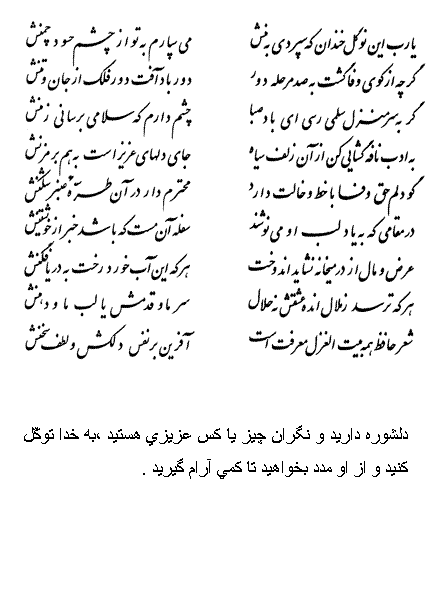 یارب این نوگل خندان که سپردی به منش می سپارم به تو از چشم حسود چمنش
گرچه از کوی وفا گشت به صد مرحله دور دور باد آفت دور فلک از جان و تنش
گر به سرمنزل سلمی رسی ای باد صبا چشم دارم که سلامی برسانی ز منش
به ادب نافه گشایی کن از آن زلف سیاه جای دلهای عزیز است به هم بر مزنش
گو دلم حق وفا با خط و خالت دارد محترم دار در آن طره عنبر شکنش
در مقامی که به یاد لب او می نوشند سفله آن مست که باشد خبر از خویشتنش
عرض و مال از در میخانه نشاید اندوخت هر که این آب خورد رخت به دریا فکنش
هر که ترسد ز ملال انده عشقش نه حلال سر ما و قدمش یا لب ما و دهنش
شعر حافظ همه بیت الغزل معرفت است آفرین بر نفس دلکش و لطف سخنش
دلشوره دارید و نگران چیز یا کس عزیزي هستید ،به خدا توکّل
کنید و از او مدد بخواهید تا کمي آرام گیرید .